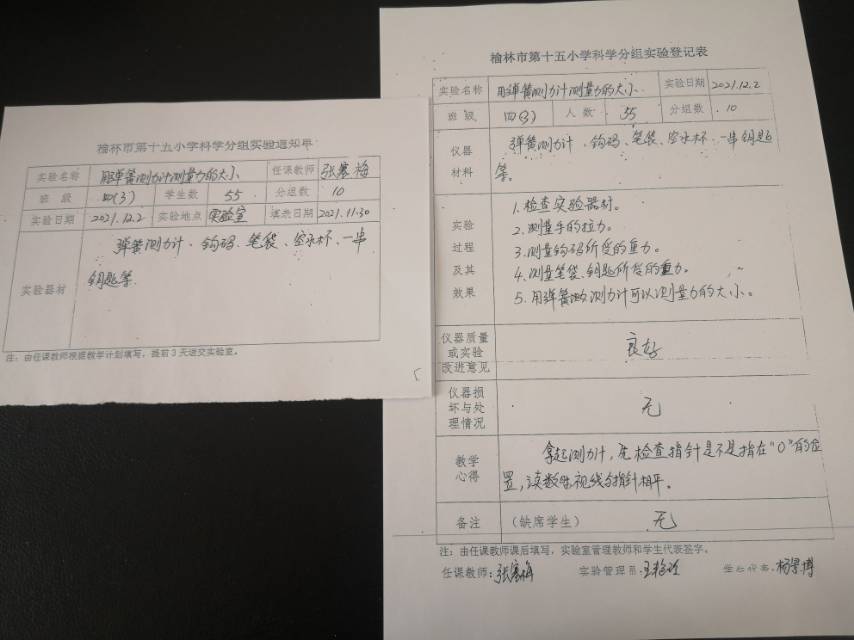 榆林市第十五小学科学分组实验通知单
实验名称 用弹簧测力计测量力的大小 任课教师 张寒梅
班 级 四(3) 学生数 55 分组数 10
实验日期 2021.12.2 实验地点 实验室 填表日期 2021.11.30
实验器材
弹簧测力计、钩码、笔袋、空水杯、一串
钥匙等.
注：由任课教师根据教学计划填写，提前3天送交实验室。
榆林市第十五小学科学分组实验登记表
实验名称 用弹簧测力计测量力的大小. 实验日期 2021.12.2
班 级 四(3) 人 数 55 分组数 10
仪器
材料
弹簧测力计、钩码、笔袋、空水杯、一串钥匙
等。
实验
过程
及其
效果
1.检查实验器材。
2.测量手的拉力。
3.测量钩码所受的重力。
4.测量笔袋、钥匙所受的重力。
5.用弹簧测力计可以测量力的大小。
仪器质量
或实验
改进意见
良好
仪器损
坏与处
理情况
无
教学
心得
拿起测力计，先检查指针是不是指在"0"的位
置，读数时视线与指针相平。
备注 （缺席学生） 无
注：由任课教师课后填写，实验室管理教师和学生代表签字。
任课教师：张寒梅 实验管理员： 学生代表：